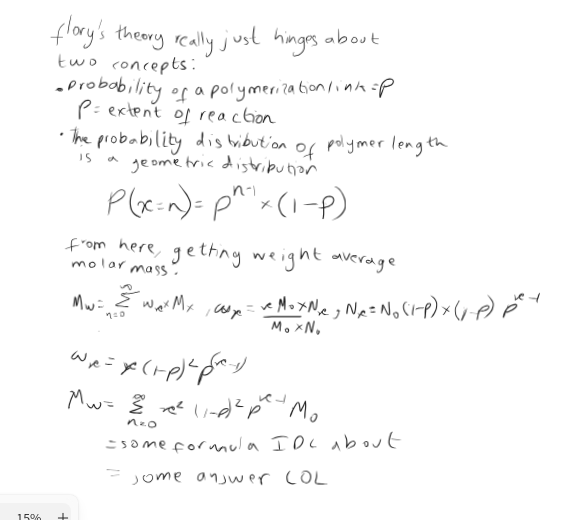 flory's theory really just hinges about
two concepts:
• probability of a polymerization link = P
P = extent of reaction
• The probability distribution of polymer length
is a geometric distribution
P(x=n) = p^{n-1} × (1-p)
from here, getting weight average
molar mass:
Mw = ∑_{n=0}^{∞} w_x × M_x , w_x = \frac{x M_0 × N_x}{M_0 × N_0} , N_x = N_0 (1-p) × (1-p) p^{x-1}
w_x = x (1-p)^2 p^{(x-1)}
Mw = ∑_{n=0}^{∞} x^2 (1-p)^2 p^{x-1} M_0
= some formula IDC about
= some answer LOL
15% +